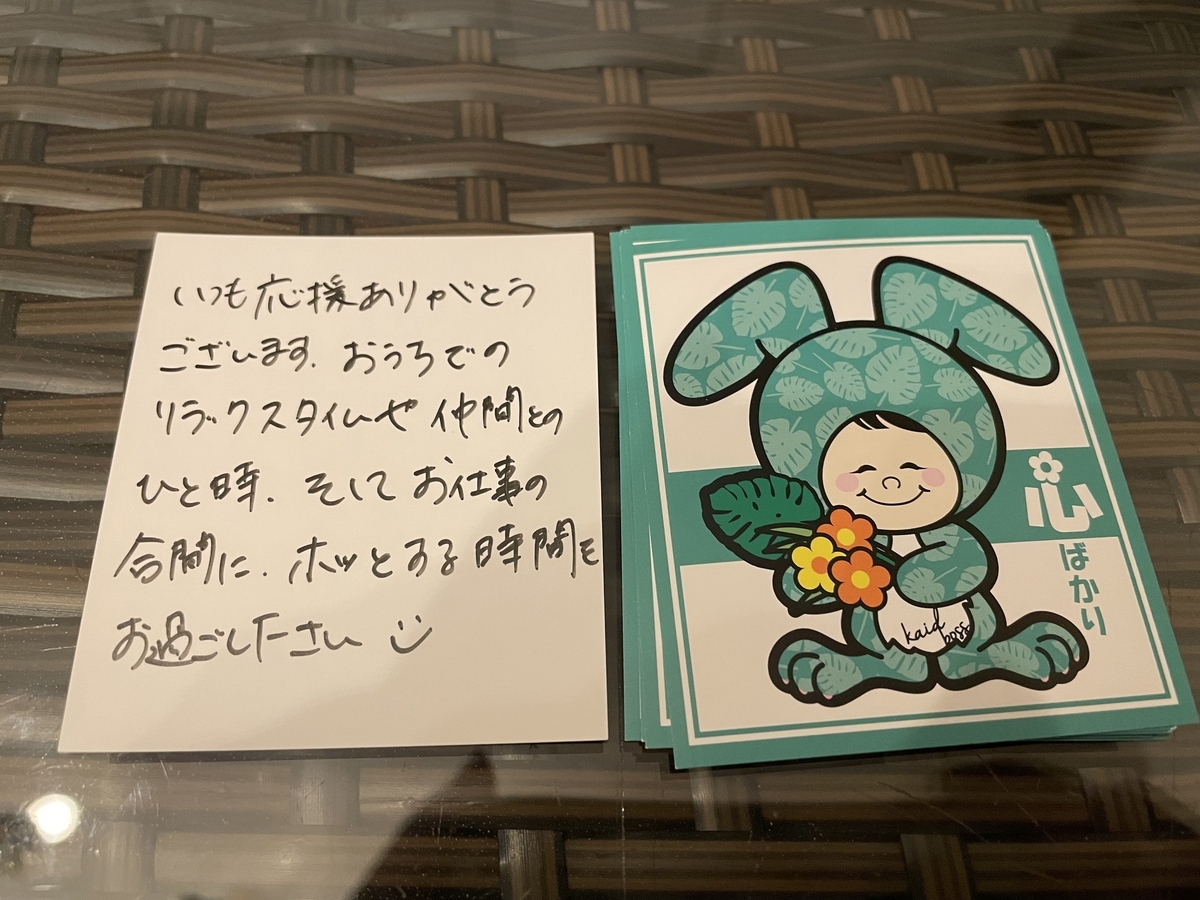 いつも応援ありがとう
ございます. おうちでの
リラックスタイムや 仲間との
ひと時. そして お仕事の
合間に. ホッとする時間を
お過ごしください
心
ばかり
kaia
boss